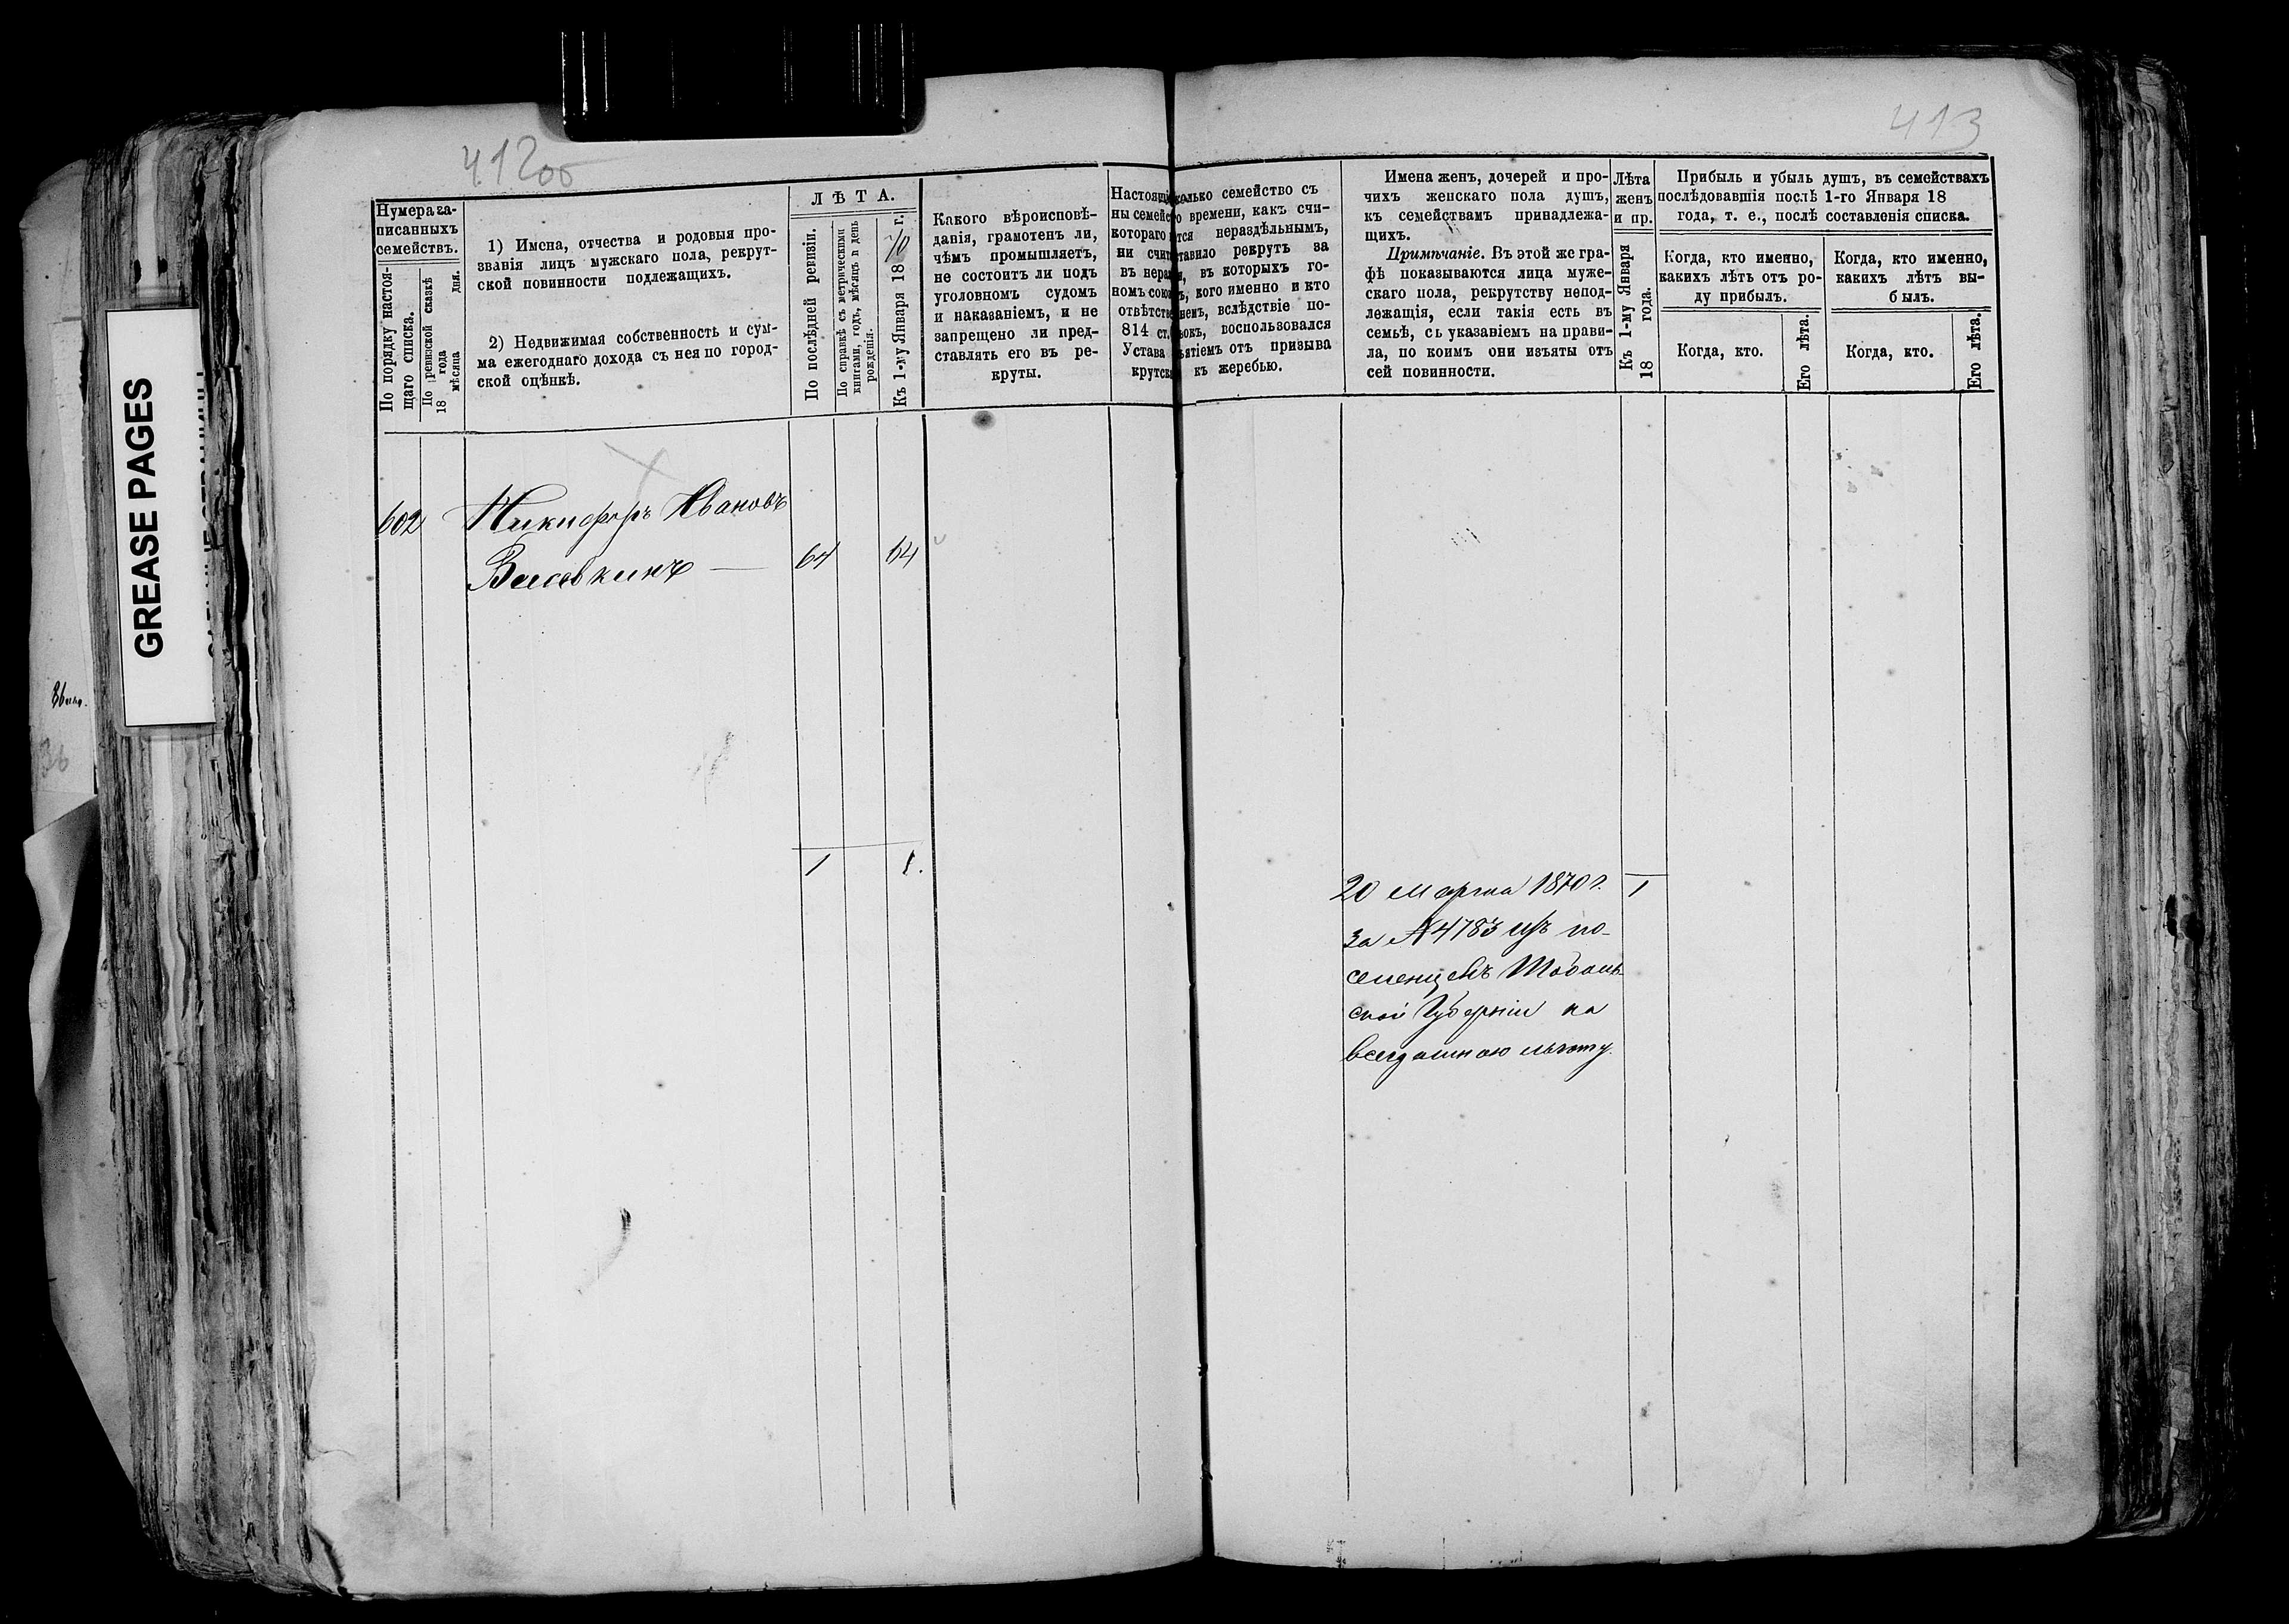 412об
413
GREASE PAGES
Нумера за-
писанныхъ
семействъ.
По порядку настоя-
щаго списка.
По ревизской сказкѣ
18 года
мѣсяца дня.
1) Имена, отчества и родовыя про-
званія лицъ мужскаго пола, рекрут-
ской повинности подлежащихъ.
2) Недвижимая собственность и сум-
ма ежегоднаго дохода съ нея по город-
ской оцѣнкѣ.
ЛѢТА.
По послѣдней ревизіи.
По справкѣ съ метрическими
книгами, годъ, мѣсяцъ и день
рожденія.
Къ 1-му Января 1870 г.
Какого вѣроисповѣ-
данія, грамотенъ ли,
чѣмъ промышляетъ,
не состоитъ ли подъ
уголовномъ судомъ
и наказаніемъ, и не
запрещено ли пред-
ставлять его въ ре-
круты.
Настоящі
ны семейс
котораго
ни счит
въ нераз
номъ союз
отвѣтств
814 ст.
Устава
крутск
колько семейство съ
о времени, какъ счи-
тся нераздѣльнымъ,
ставило рекрутъ за
и, въ которыхъ го-
ъ, кого именно и кто
немъ, вслѣдствіе по-
ьокъ, воспользовался
ъятіемъ отъ призыва
къ жеребью.
Имена женъ, дочерей и про-
чихъ женскаго пола душъ,
къ семействамъ принадлежа-
щихъ.
Примѣчаніе. Въ этой же гра-
фѣ показываются лица муже-
скаго пола, рекрутству непод-
лежащія, если такія есть въ
семьѣ, съ указаніемъ на прави-
ла, по коимъ они изъяты отъ
сей повинности.
Лѣта
женъ
и пр.
Къ 1-му Января
18 года.
Прибыль и убыль душъ, въ семействахъ
послѣдовавшія послѣ 1-го Января 18
года, т. е., послѣ составленія списка.
Когда, кто именно,
какихъ лѣтъ отъ ро-
ду прибылъ.
Когда, кто именно,
какихъ лѣтъ вы-
былъ.
Когда, кто.
Его лѣта.
Когда, кто.
Его лѣта.
602
Никифоръ Ивановъ
64 64
1 1.
20 Марта 1870 г. 1
за №4783 изъ по-
селенцевъ Тоболь
ской Губерніи на
всегдашнюю льготу.